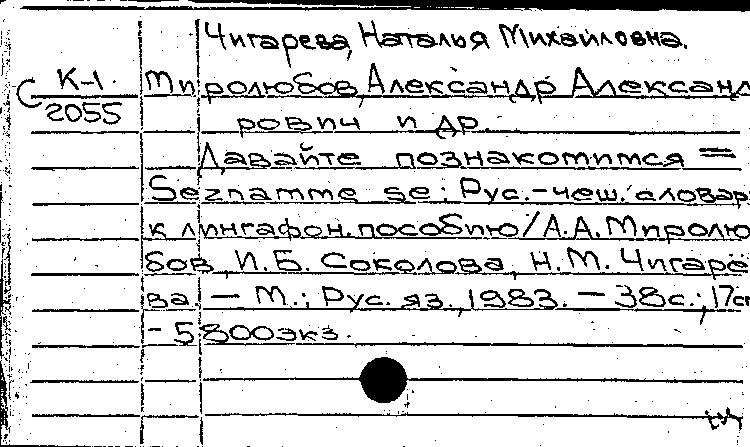 Чигарева, Наталья Михайловна.
К-1. Миролюбов, Александр Александ
2055
рович и др.
Давайте познакомимся =
Seznamme se: Рус.-чеш. словарь
к лингафон. пособию / А.А. Миролю
бов, И.Б. Соколова, Н.М. Чигаре
ва. — М.: Рус. яз., 1983. — 38с.; 17см
- 5800экз.